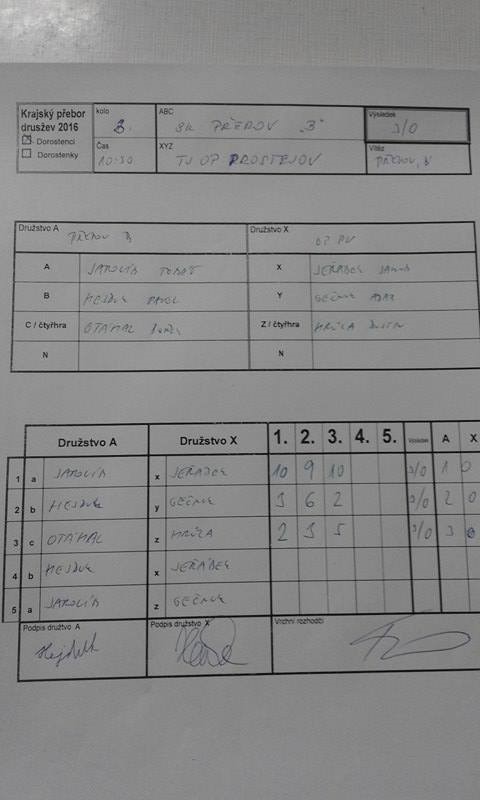 Krajský přebor družstev 2016
☒ Dorostenci
☐ Dorostenky
kolo 3.
ABC SK PŘEROV „B"
Výsledek 3/0
Čas 10:30
XYZ TJ OP PROSTEJOV
Vítěz PŘEROV B
Družstvo A PŘEROV B
Družstvo X OP PV
A JAROLÍM TOMÁŠ X JEŘÁBEK JAKUB
B HEJDUK PAVEL Y GEČNUK ADAM
C / čtyřhra OTÁHAL Z / čtyřhra
N N
Družstvo A Družstvo X 1. 2. 3. 4. 5. Výsledek A X
1 a JAROLÍM x JEŘÁBEK 10 9 10 3/0 1 0
2 b HEJDUK y GEČNUK 3 6 2 3/0 2 0
3 c OTÁHAL z 2 3 5 3/0 3 0
4 b HEJDUK x JEŘÁBEK
5 a JAROLÍM z GEČNUK
Podpis družtvo A Podpis družtvo X Vrchní rozhodčí